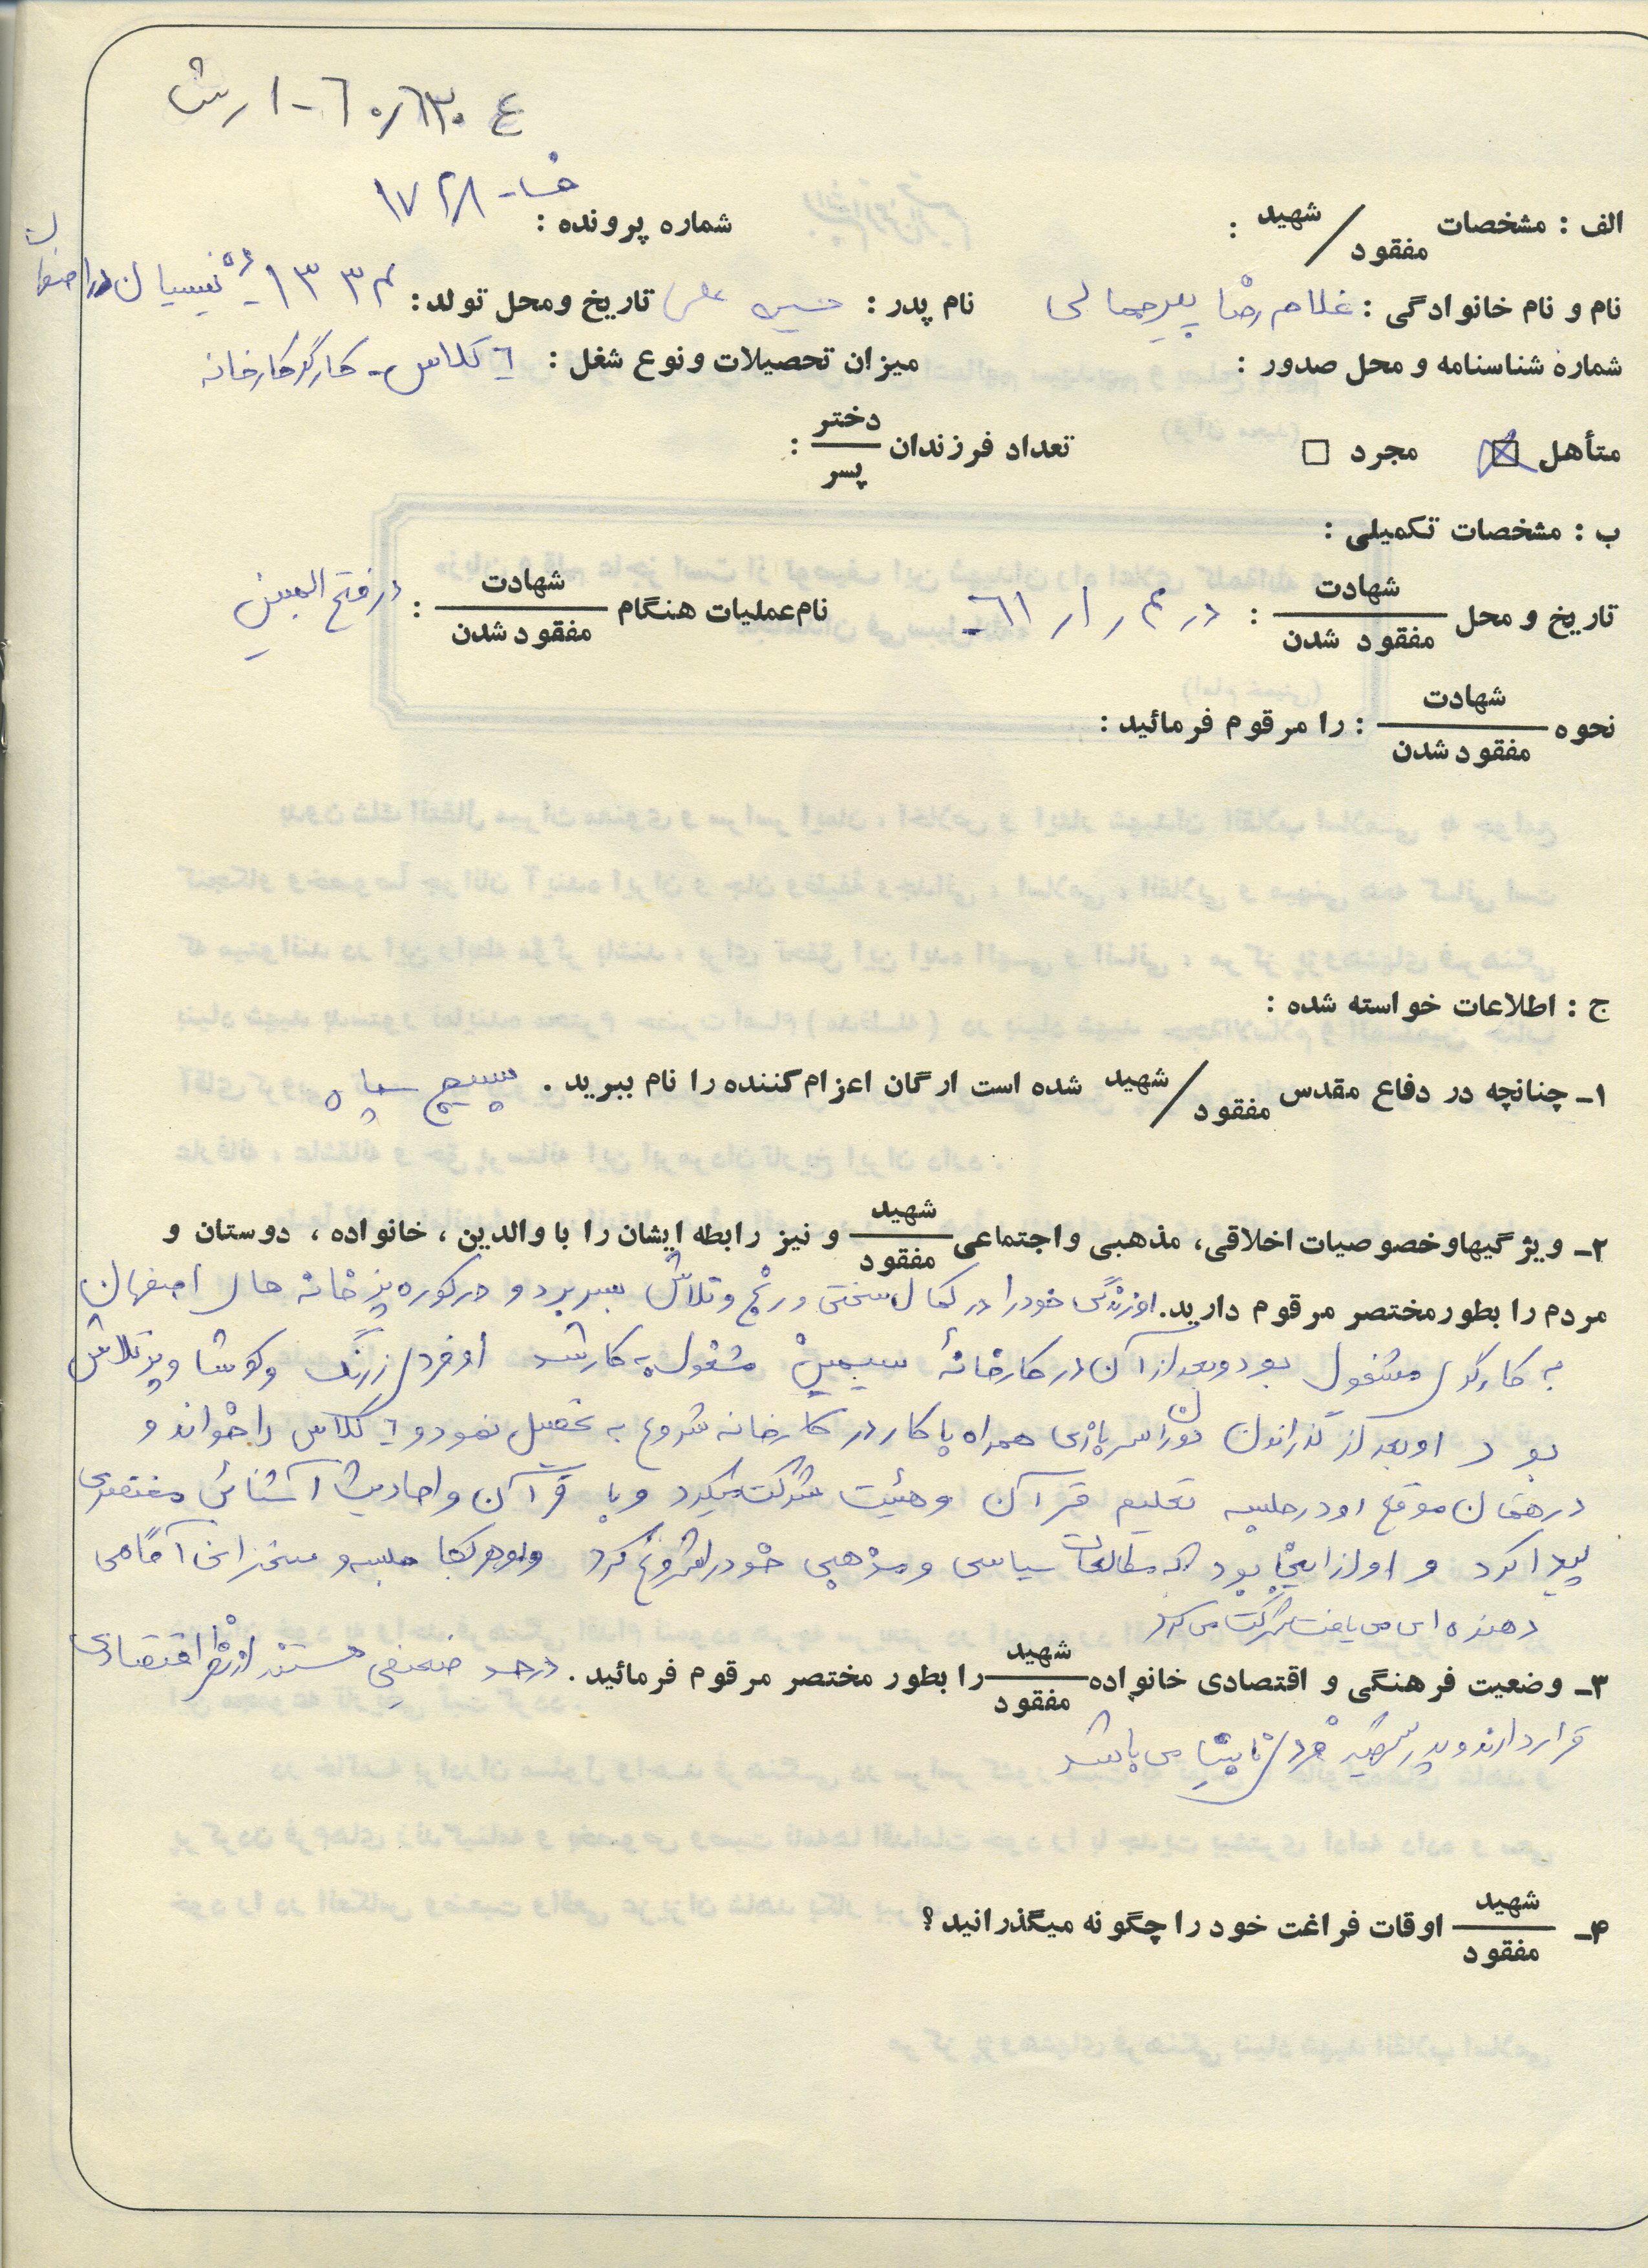 ع ٦٠/٦٣٠-١ رش
١٧٢٨
الف : مشخصات شهید / مفقود : شماره پرونده :
نام و نام خانوادگی : غلامرضا پیرجمالی نام پدر : حسین علی تاریخ ومحل تولد : ١٣٣٤ - ده نیسیان در اصفهان
شماره شناسنامه و محل صدور : میزان تحصیلات ونوع شغل : ٦ کلاس - کارگر کارخانه
متأهل ☒ مجرد □ تعداد فرزندان دختر / پسر :
ب : مشخصات تکمیلی :
تاریخ و محل شهادت / مفقود شدن : در ٤ ر ١ ر ٦١ نام عملیات هنگام شهادت / مفقود شدن : در فتح المبین
نحوه شهادت / مفقود شدن : را مرقوم فرمائید :
ج : اطلاعات خواسته شده :
١ـ چنانچه در دفاع مقدس شهید / مفقود شده است ارگان اعزام کننده را نام ببرید . بسیج سپاه
٢ـ ویژگیهاوخصوصیات اخلاقی، مذهبی واجتماعی شهید / مفقود و نیز رابطه ایشان را با والدین ، خانواده ، دوستان و
مردم را بطورمختصر مرقوم دارید. او زندگی خود را در کمال سختی و رنج و تلاش بسر برد و در کوره پزخانه های اصفهان
به کارگری مشغول بود و بعد از آن در کارخانهٔ سیمین مشغول به کار شد او فردی زرنگ و کوشا و پرتلاش
بود او بعد از گذراندن دوران سربازی همراه با کار در کارخانه شروع به تحصیل نمود و ٦ کلاس را خواند و
در همان موقع او در جلسه تعلیم قرآن و هیئت شرکت میکرد و با قرآن و احادیث آشنائی مختصری
پیدا کرد و او از اینجا بود که مطالعات سیاسی و مذهبی خود را شروع کرد و او هر کجا جلسه و سخنرانی آگاهی
دهنده ای می یافت شرکت می کرد
٣ـ وضعیت فرهنگی و اقتصادی خانواده شهید / مفقود را بطور مختصر مرقوم فرمائید . در حد ضعیفی هستند از نظر اقتصادی
قرار دارند و پدر شهید فردی نابینا می باشد
٤ـ شهید / مفقود اوقات فراغت خود را چگونه میگذرانید ؟